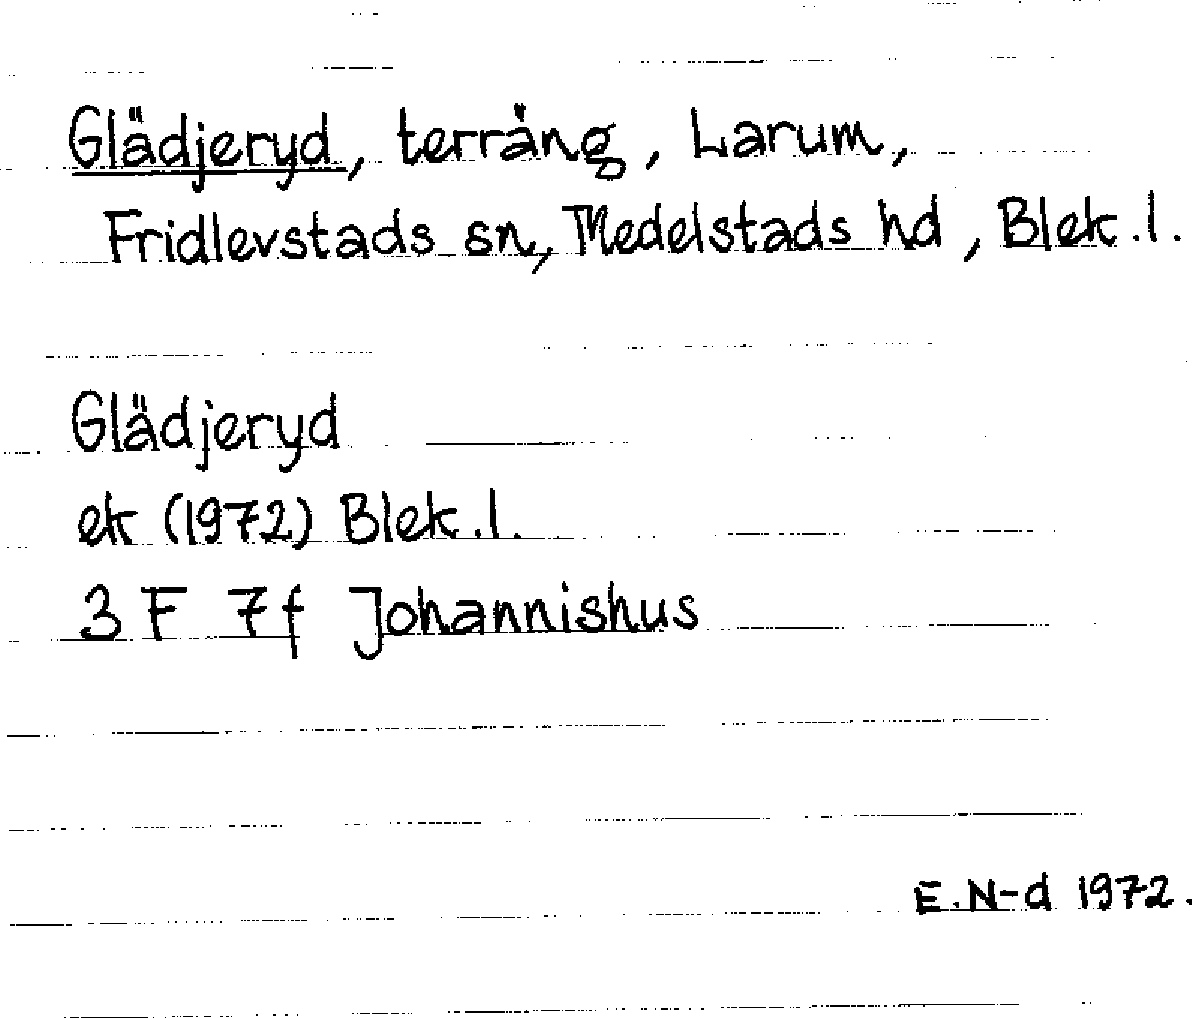 Glädjeryd, terräng, Larum,
Fridlevstads sn, Medelstads hd, Blek.l.
Glädjeryd
ek (1972) Blek.l.
3 F 7f Johannishus
E.N-d 1972.